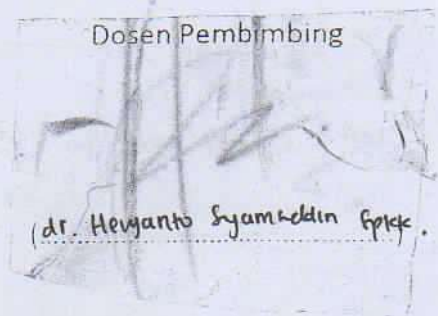 Dosen Pembimbing
(dr. Heryanto Syamsuddin SpKK.